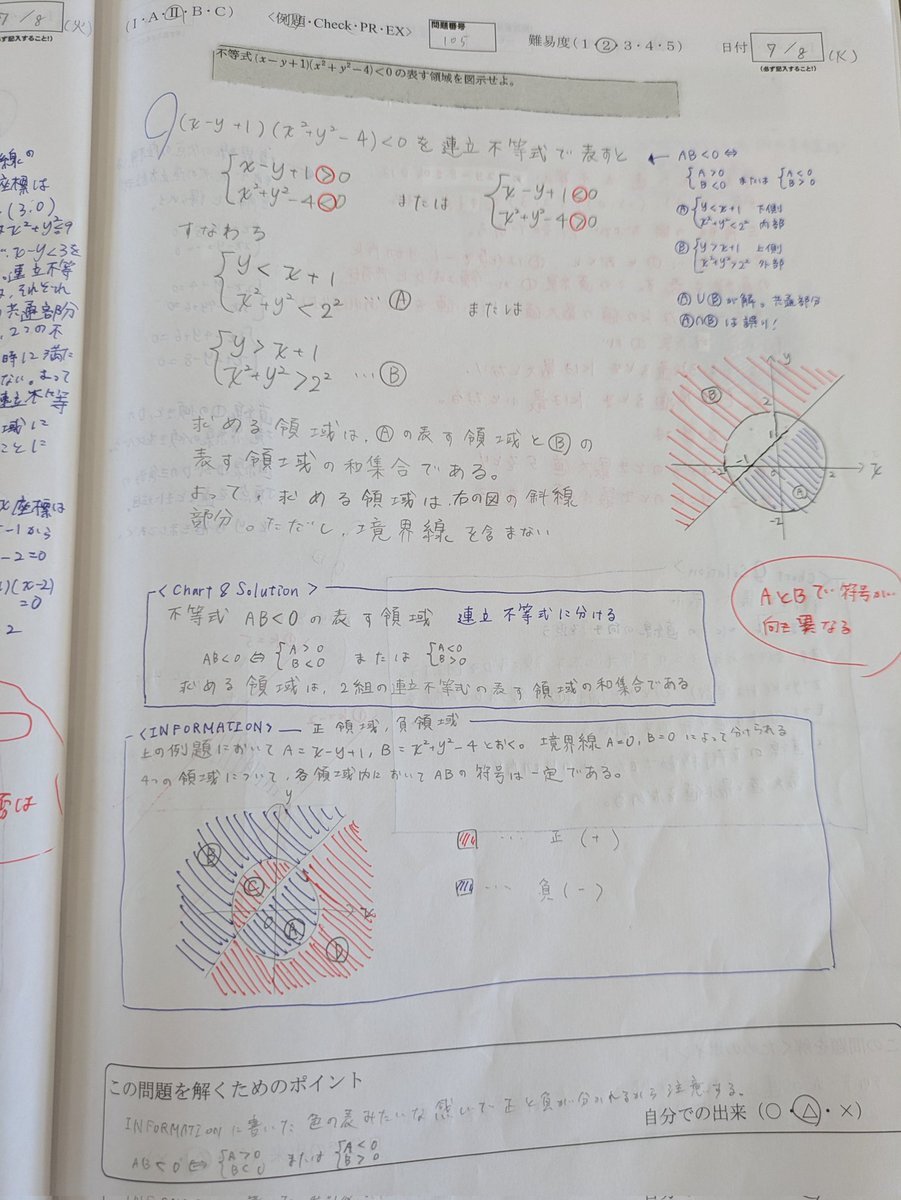 7/8
(火)
(必ず記入すること!)
(I・A・Ⅱ・B・C)
<例題・Check・PR・EX>
問題番号
105
難易度(1・2・3・4・5)
日付
7/8
(火)
(必ず記入すること!)
不等式(x−y+1)(x²+y²−4)<0の表す領域を図示せよ。
(x−y+1)(x²+y²−4)<0を連立不等式で表すと
{x−y+1>0
x²+y²−4<0
または
{x−y+1<0
x²+y²−4>0
すなわち
{y<x+1
x²+y²<2² Ⓐ または
{y>x+1
x²+y²>2² …Ⓑ
← AB<0 ⇔
{A>0
B<0 または {A<0
B>0
Ⓐ{y<x+1 下側
x²+y²<2² 内部
Ⓑ{y>x+1 上側
x²+y²>2² 外部
Ⓐ∪Ⓑが解。共通部分
Ⓐ∩Ⓑは誤り!
求める領域は、Ⓐの表す領域とⒷの
表す領域の和集合である。
よって、求める領域は右の図の斜線
部分。ただし、境界線を含まない
y
Ⓑ
2
1
-2
-1
0
2
x
Ⓐ
-2
AとBで符号が
向き異なる
<Chart & Solution>
不等式 AB<0 の表す領域 連立不等式に分ける
AB<0 ⇔ {A>0
B<0 または {A<0
B>0
求める領域は、2組の連立不等式の表す領域の和集合である
<INFORMATION> 正領域,負領域
上の例題において A=x−y+1, B=x²+y²−4とおく。境界線 A=0, B=0 によって分けられる
4つの領域について、各領域内において ABの符号は一定である。
y
Ⓑ
Ⓒ
0
Ⓐ
2
x
Ⓓ
…… 正 (+)
… 負 (−)
この問題を解くためのポイント
INFORMATIONに書いた色の表みたいな感じで正と負が分かれるから注意する。
自分での出来(○・△・×)
AB<0 ⇔ {A>0
B<0 または {A<0
B>0
線の
座標は
(3,0)
x²+y²≦9
x−y<3を
連立不等
それぞれ
共通部分
2つの不
時に満た
ない。よって
連立不等
域に
ことに
x座標は
−1から
−2=0
)(x−2)
=0
2